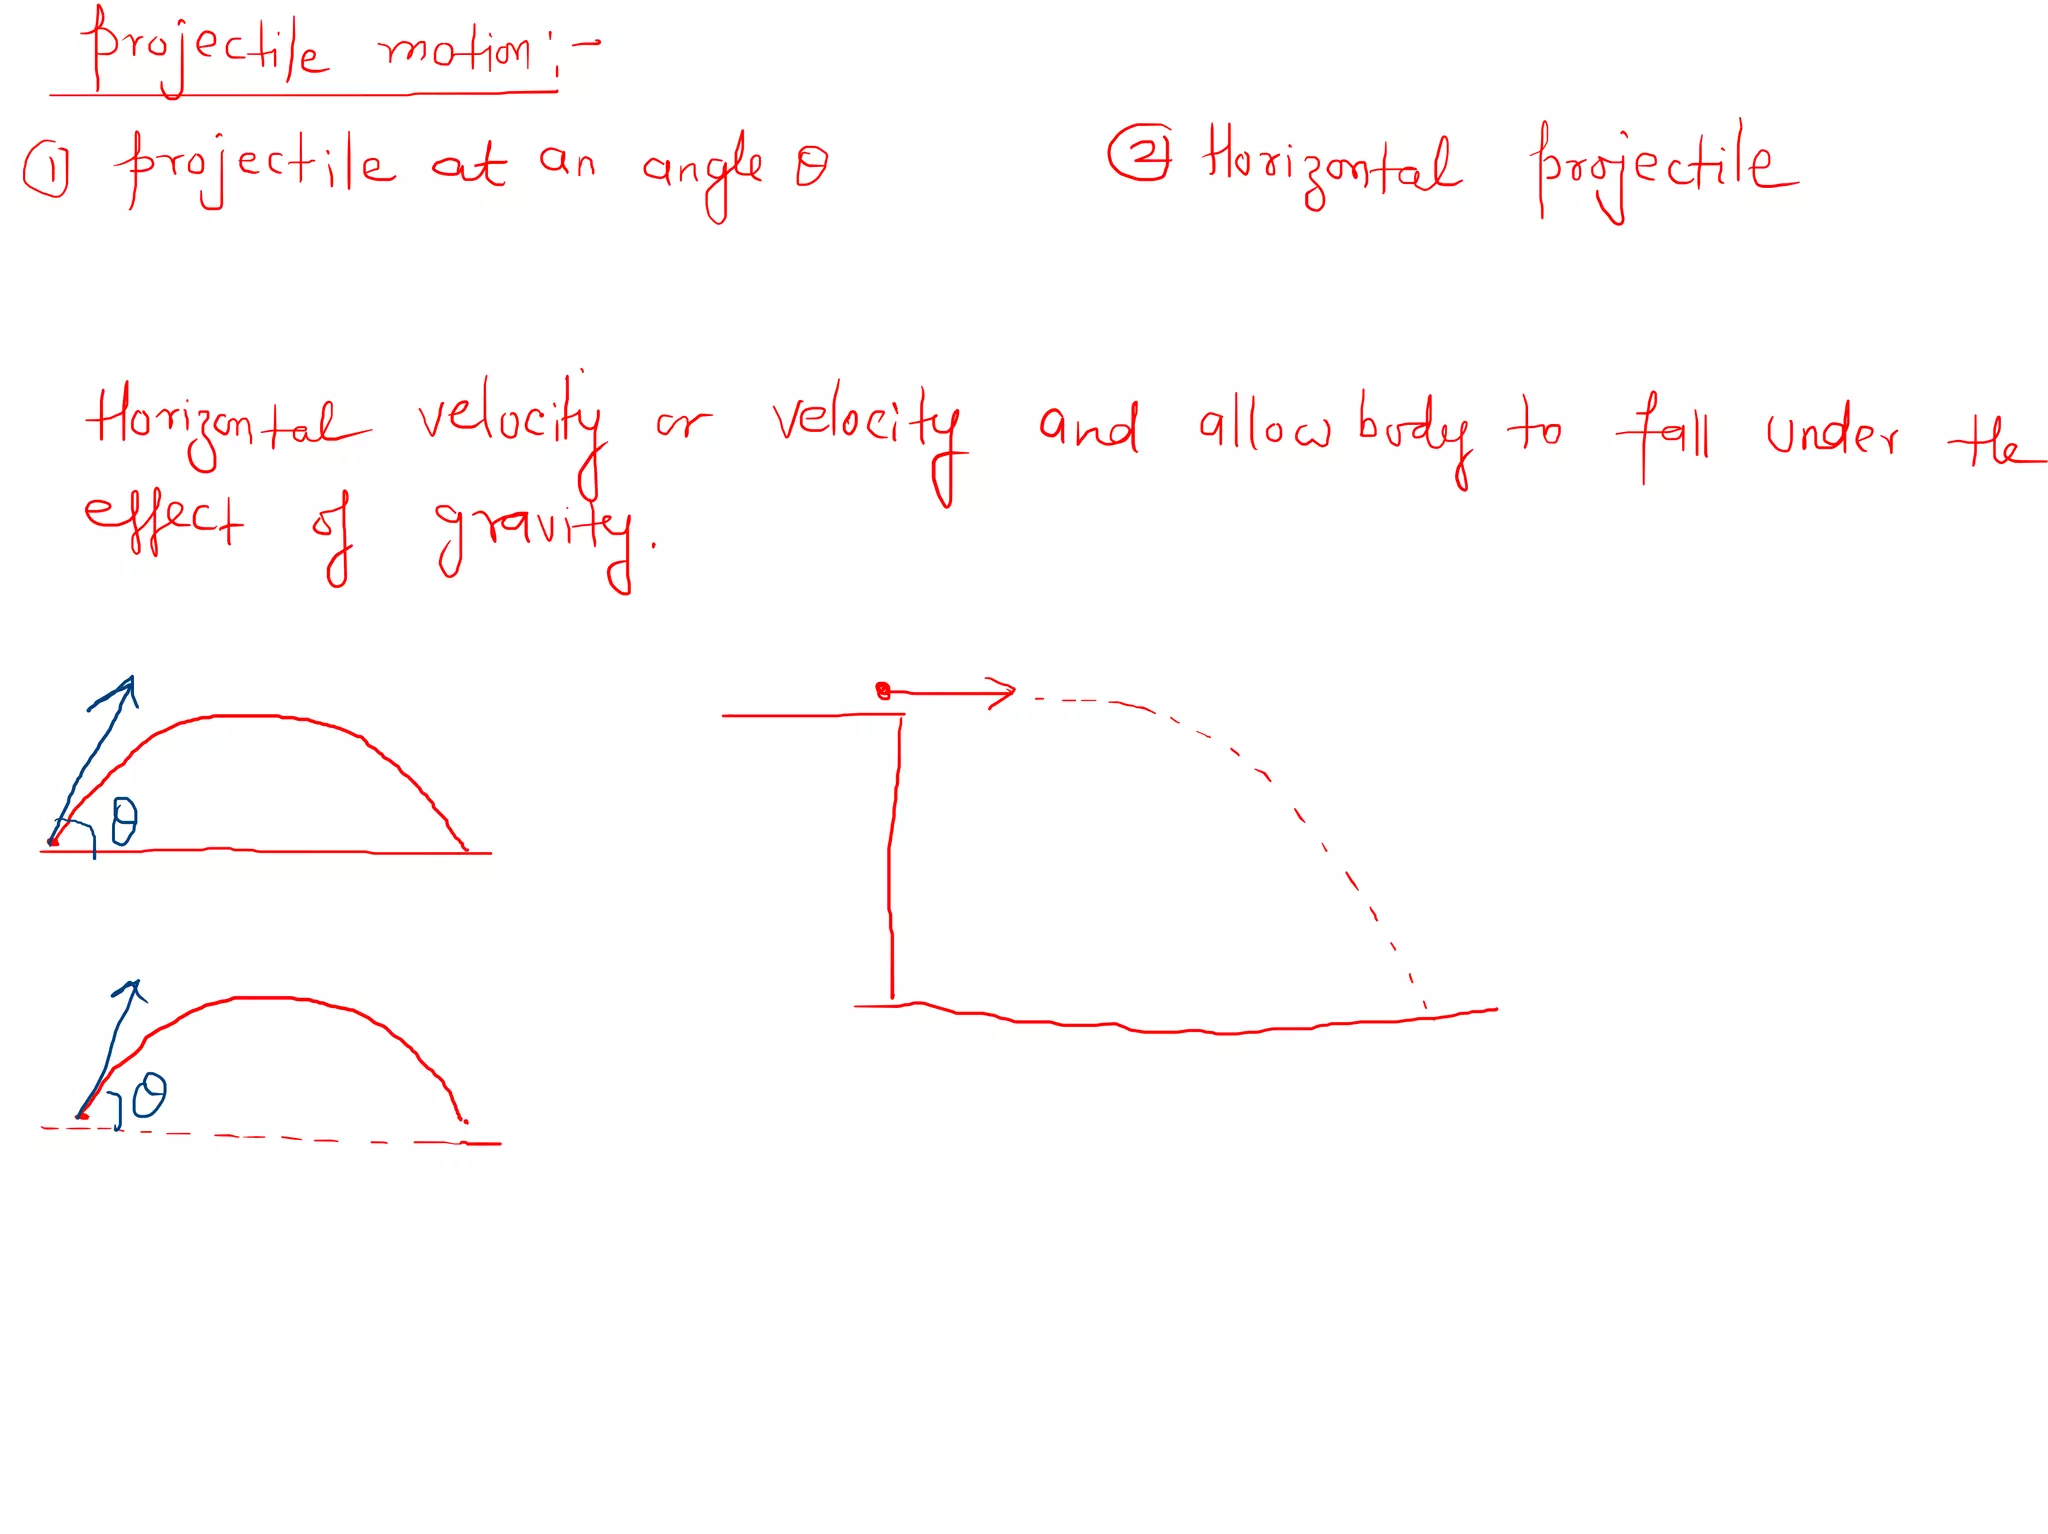 projectile motion:-
① projectile at an angle θ
② Horizontal projectile
Horizontal velocity or velocity and allow body to fall under the
effect of gravity.
θ
θ